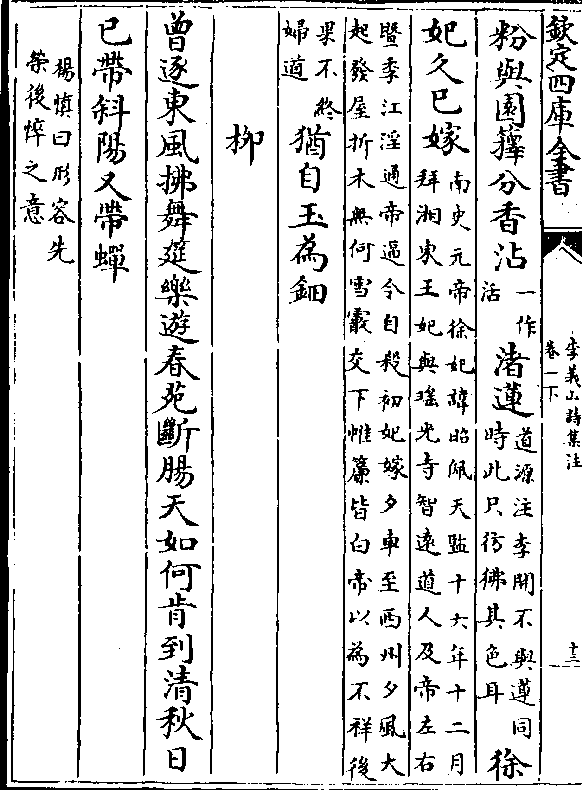 欽定四庫全書
李義山詩集注
卷一下
十三
粉與園籜分香沾一作活渚蓮道源注李開不與蓮同時此只彷彿其色耳徐
妃久已嫁南史元帝徐妃諱昭佩天監十六年十二月拜湘東王妃與瑤光寺智遠道人及帝左右
暨季江淫通帝逼令自殺初妃嫁夕車至西州夕風大起發屋折木無何雪霰交下帷簾皆白帝以為不祥後
果不終婦道猶自玉為鈿
柳
曾逐東風拂舞筵樂遊春苑斷腸天如何肯到清秋日
已帶斜陽又帶蟬
楊慎曰形容先
榮後悴之意